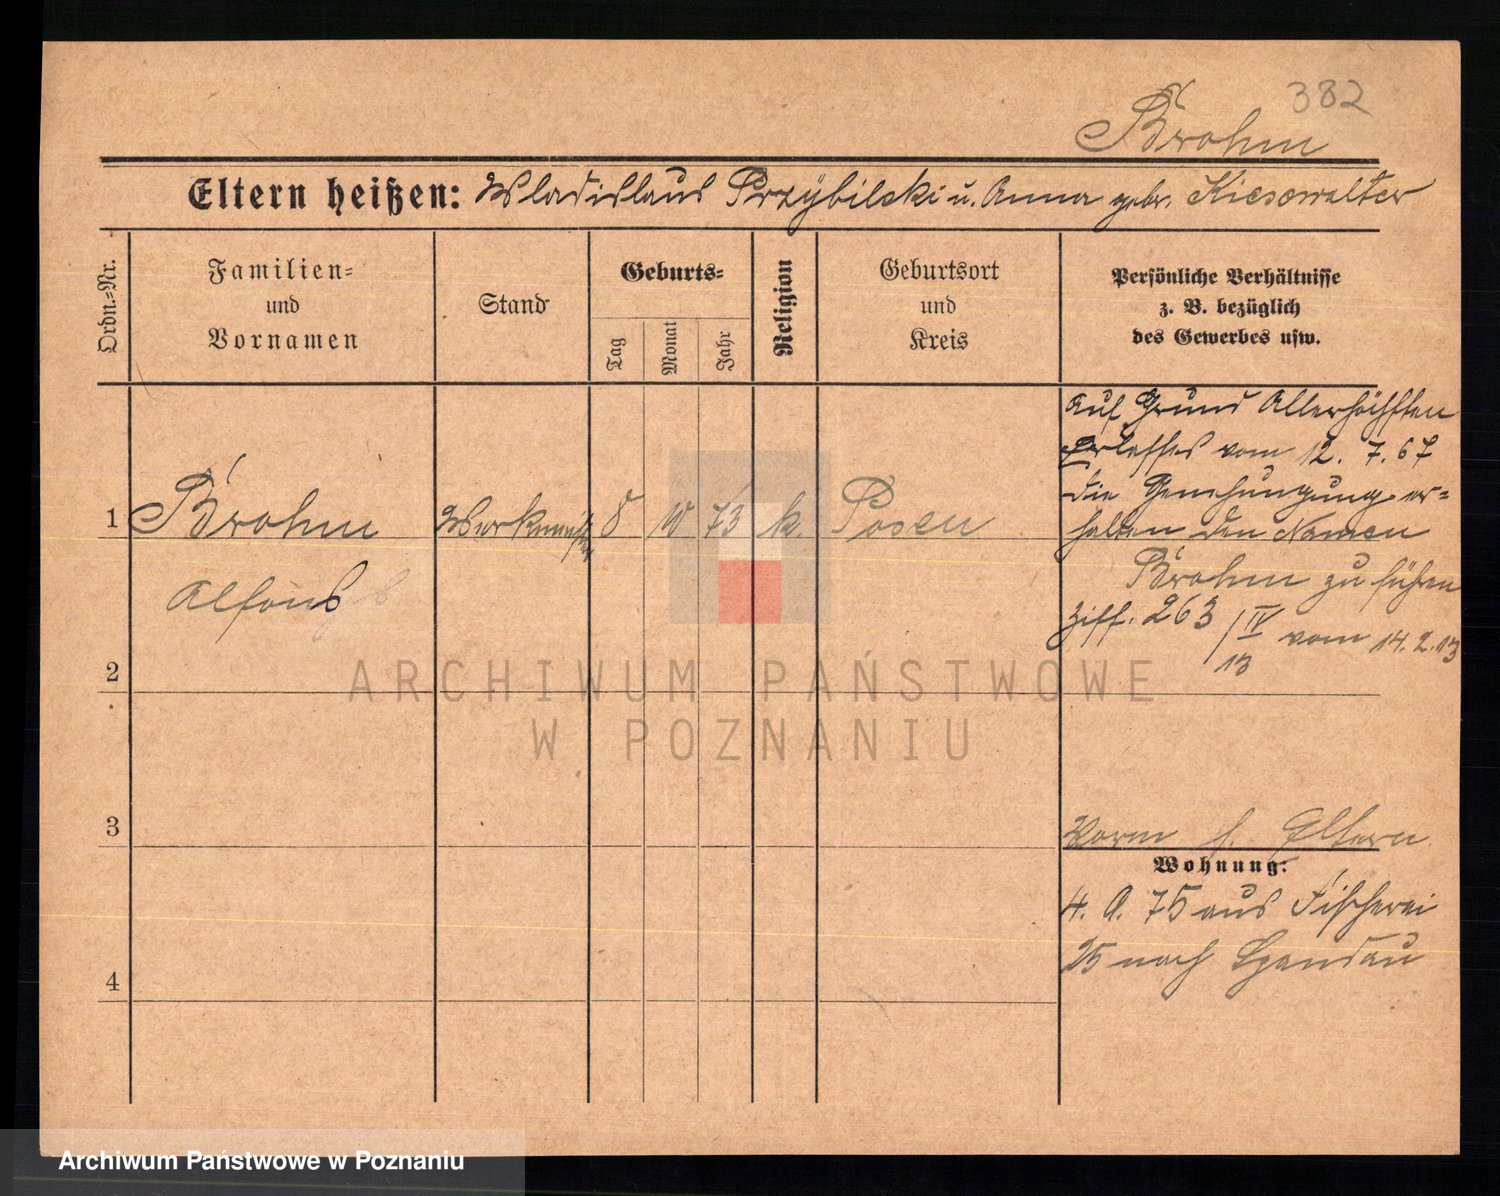 382
Brohm
Eltern heißen: Wladislaus Przybilski u. Anna gebr. Kiesewalter
Ordn.=Nr.
Familien=
und
Vornamen
Stand
Geburts=
Tag
Monat
Jahr
Religion
Geburtsort
und
Kreis
Persönliche Verhältnisse
z. B. bezüglich
des Gewerbes usw.
Auf Grund Allerhöchsten
Erlasses vom 12. 7. 67
die Genehmigung er=
halten den Namen
Brohm zu führen
Ziff. 263 / IV 13 vom 14. 2. 13
1 Brohm Werkmeister 8 10 73 k. Posen
Alfons
2
3
4
Vorm f. Eltern
Wohnung:
4. A. 75 aus Fischerei
25 nach Spandau
ARCHIWUM PAŃSTWOWE
W POZNANIU
Archiwum Państwowe w Poznaniu